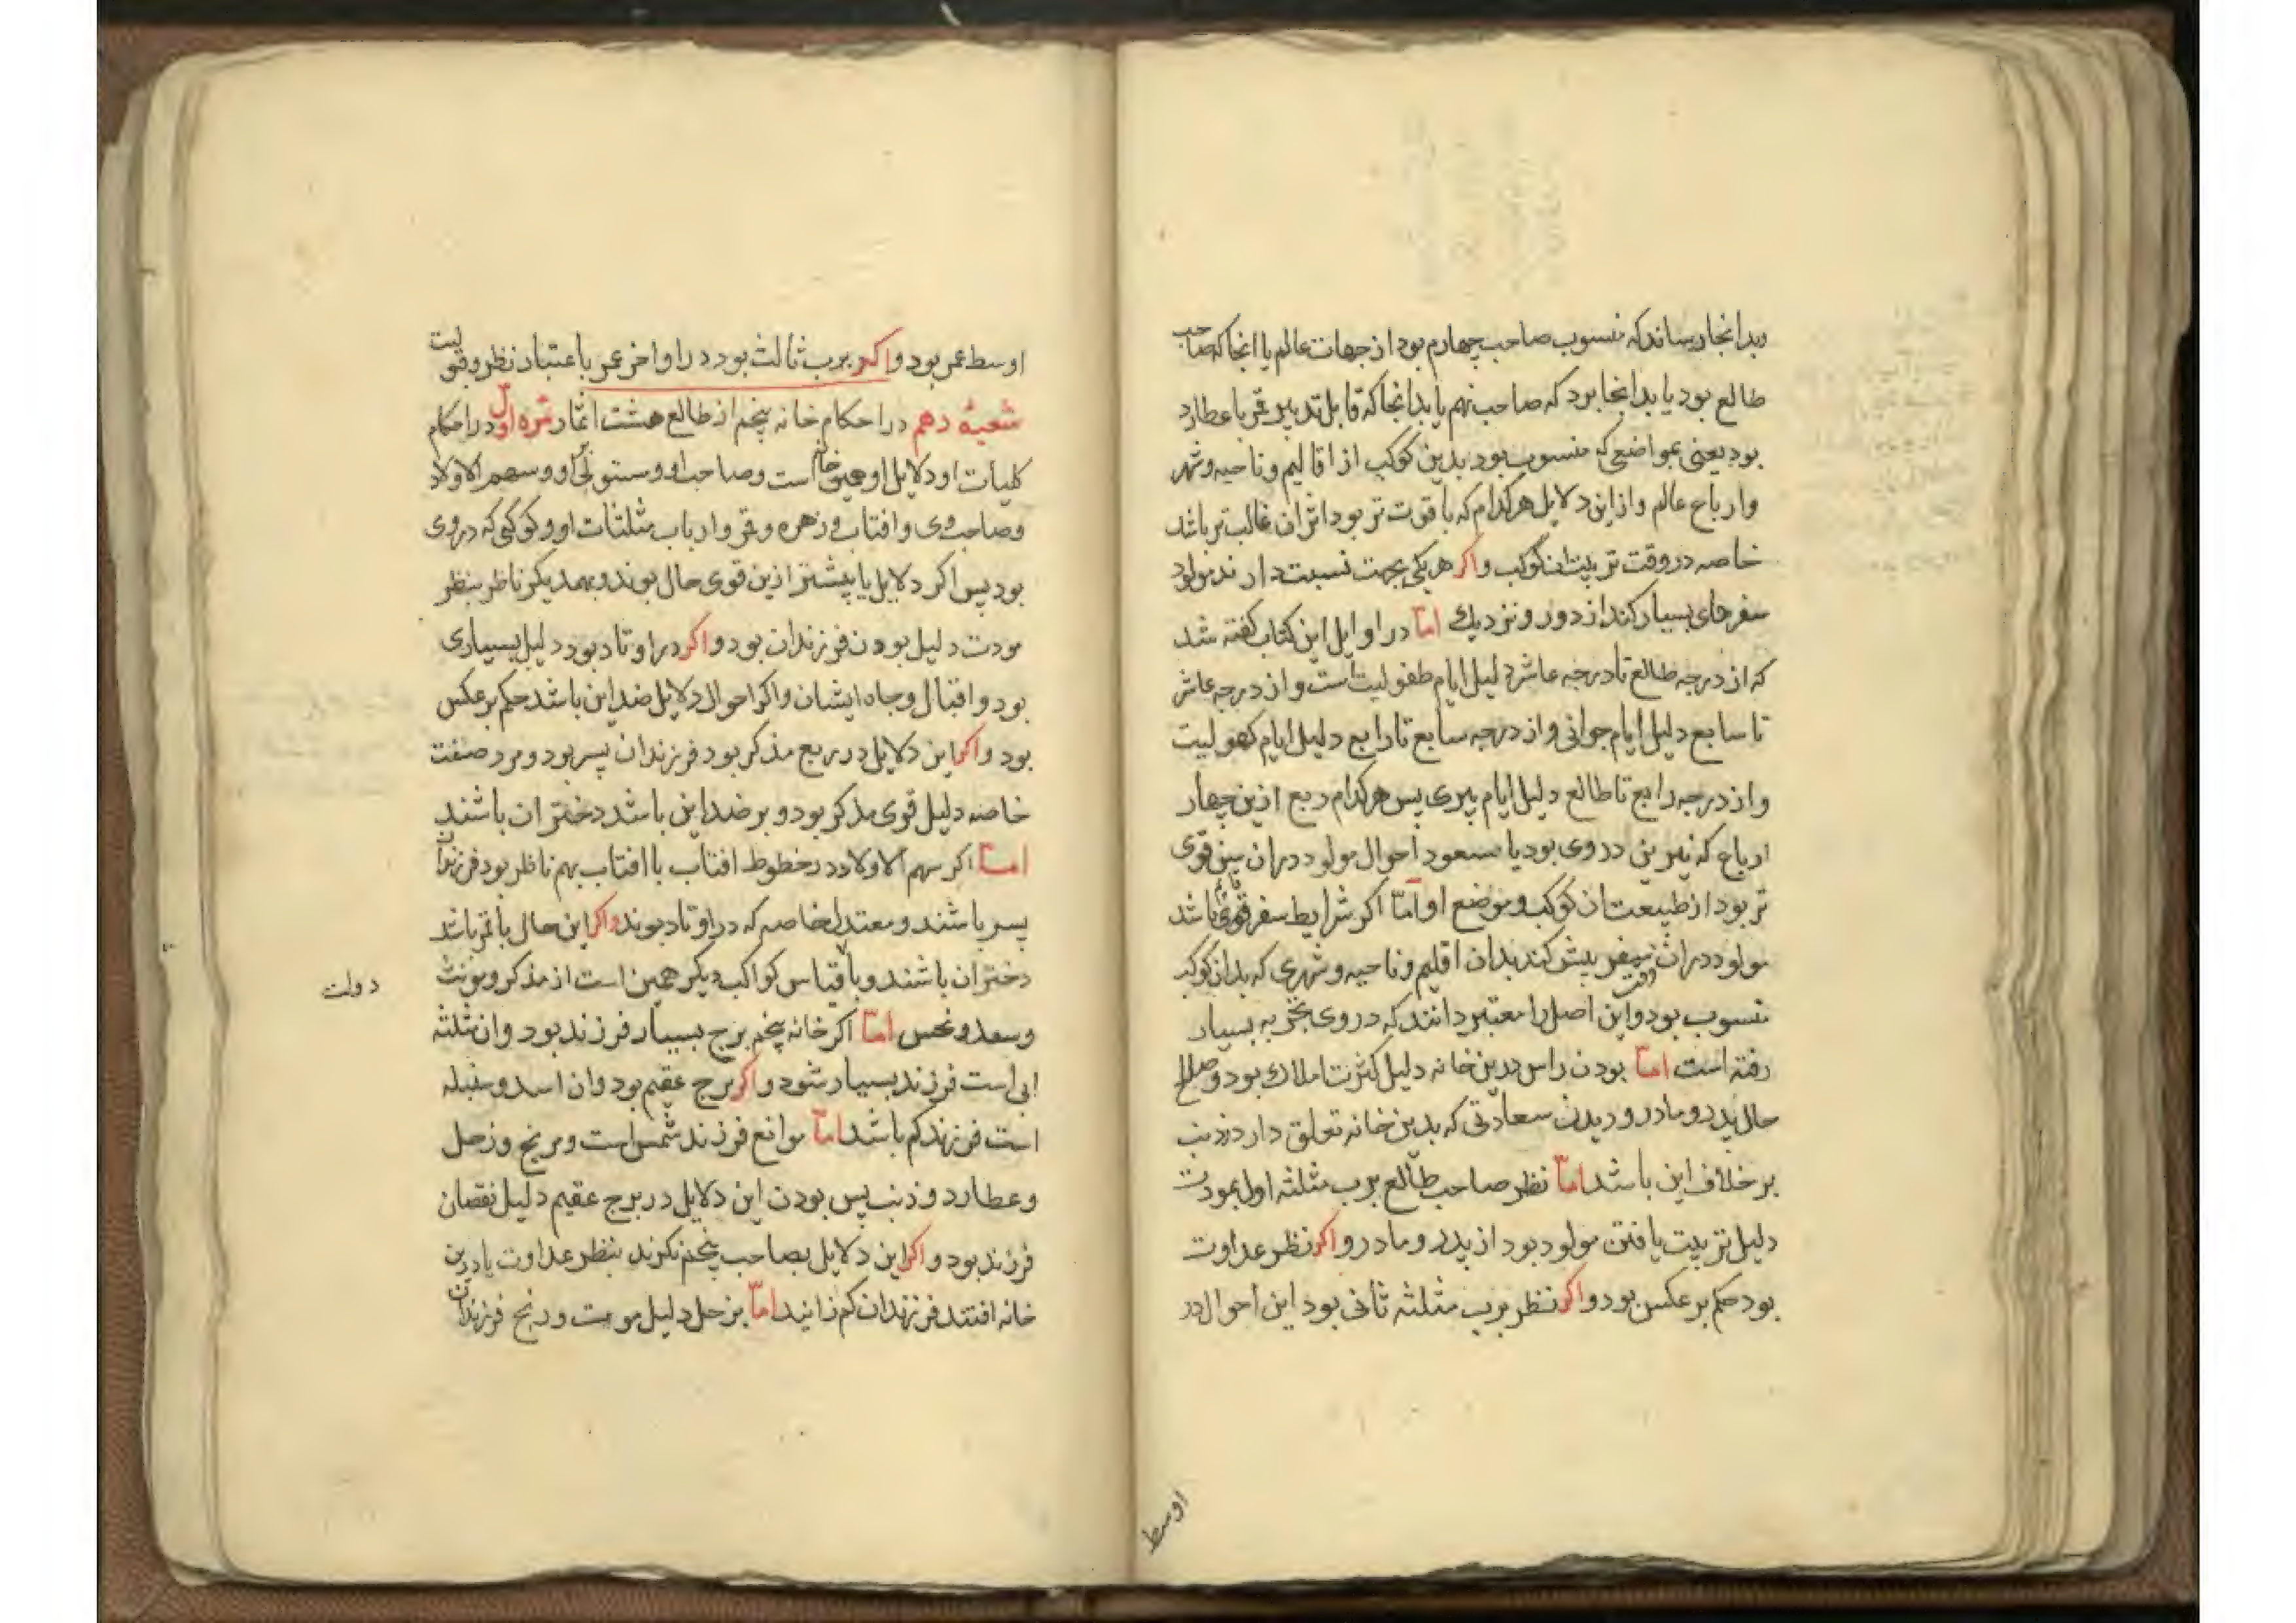 وبدانجا رساند که منسوب صاحب چهارم بود از جهات عالم یا انجا که صاحب
طالع بود یا بدانجا برد که صاحب نهم یا بدانجا که قابل تدبیر قمر با عطارد
بود یعنی بمواضعی که منسوب بود بدین کوکب از اقالیم و ناحیه و شهر
و ارباع عالم و از این دلایل هر کدام که با قوت تر بود اثر ان غالب تر باشد
خاصه در وقت تربیت ان کوکب واکر هر یکی بجهت نسبت دارند مولود
سفرهای بسیار کند از دور و نزدیك اما در اوایل این کتاب کفته شد
که از درجه طالع تا درجه عاشر دلیل ایام طفولیت است و از درجه عاشر
تا سابع دلیل ایام جوانی و از درجه سابع تا رابع دلیل ایام کهولیت
و از درجه رابع تا طالع دلیل ایام پیری پس هر کدام ربع ازین چهار
ارباع که نیرین در وی بود یا سعود احوال مولود دران سن قوی
تر بود از طبیعت ان کوکب و موضع او اما اکر شرایط سفر باشد
مولود دران سفر بیش کند بدان اقلیم و ناحیه و شهری که بدان کوکب
منسوب بود و این اصل را معتبر دانند که در وی تجربه بسیار
رفته است اما بودن راس درین خانه دلیل کثرت املاك بود و صلاح
حال پدر و مادر و دیدن سعادتی که بدین خانه تعلق دارد و ذنب
بر خلاف این باشد اما نظر صاحب طالع برب مثلثه اول بمودت
دلیل تربیت یافتن مولود بود از پدر و مادر واکر نظر عداوت
بود حکم بر عکس بود واکر نظر برب مثلثه ثانی بود این احوال در
اوسط
اوسط عمر بود واکر برب ثالث بود در اواخر عمر باعتبار نظر وقو
شعبهٔ دهم در احکام خانه پنجم از طالع هشت اثمار ثمره اول در احکام
کلیات او دلایل او همین خانه است و صاحب او و مستولی او و سهم الاولاد
و صاحب وی و افتاب و زهره و قمر و ارباب مثلثات او و کوکبی که در وی
بود پس اکر دلایل یا بیشتر ازین قوی حال بوند و بهمدیکر ناظر بنظر
مودت دلیل بودن فرزندان بود واکر در اوتاد بود دلیل بسیاری
بود و اقبال و جاه ایشان و اکر احوال دلایل ضد این باشد حکم بر عکس
بود واکر این دلایل در ربع مذکر بود فرزندان پسر بود و مرد صفت
خاصه دلیل قوی مذکر بود و بر ضد این باشد دختران باشند
اما اکر سهم الاولاد در خطوط افتاب با افتاب بهم ناظر بود فرزندان
پسر باشند و معتدل خاصه که در اوتاد بوند واکر این حال با قمر باشد
دختران باشند و باقیاس کواکب دیکر همین است از مذکر و مونث
دولت
و سعد و نحس اما اکر خانه پنجم برج بسیار فرزند بود و ان مثلثه
ابی است فرزند بسیار شود واکر برج عقیم بود و ان اسد و سنبله
است فرزند کم باشد اما موانع فرزند شمس است و مریخ و زحل
و عطارد و ذنب پس بودن این دلایل در برج عقیم دلیل نقصان
فرزند بود واکر این دلایل بصاحب پنجم نکرند بنظر عداوت یا درین
خانه افتند فرزندان کم زایند اما بزحل دلیل موت و رنج فرزندان